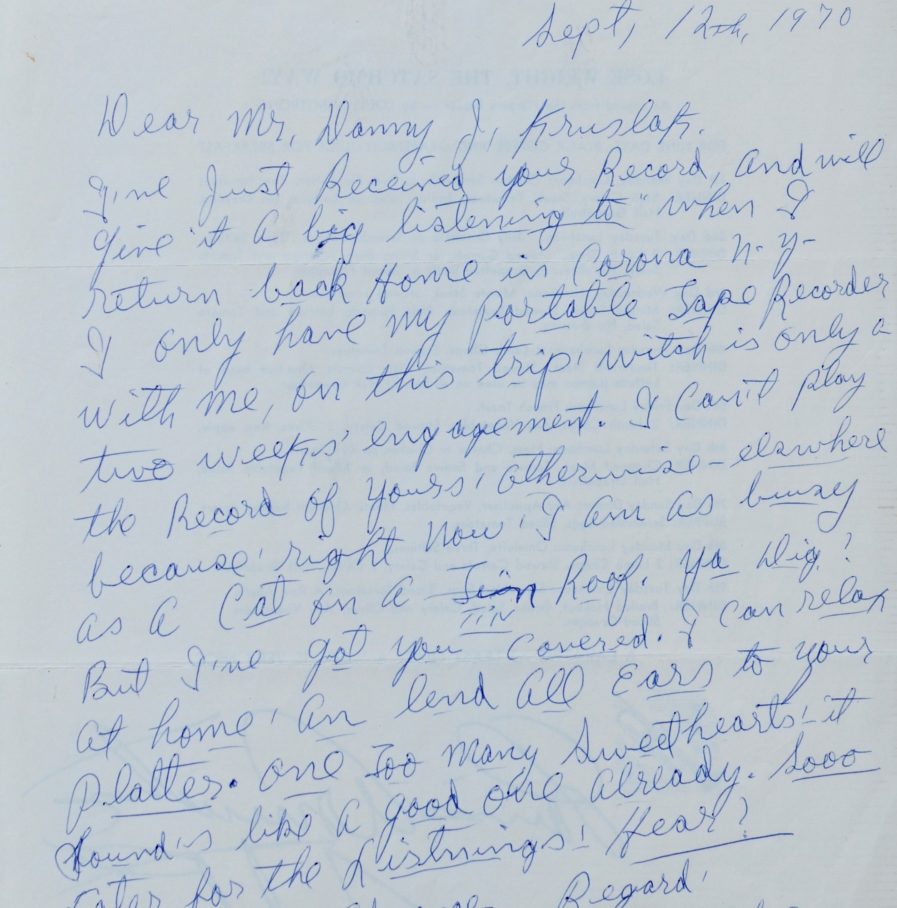 Sept, 12th, 1970
Dear Mr, Danny J, Kruslak.
I've Just Received your Record, and will
give it A big listening to" when I
return back Home in Corona N.Y.
I only have my Portable Tape Recorder
with me, on this trip, witch is only a
two weeks' engagement. I Can't play
the Record of yours, otherwise – elswhere
because, right Now, I am as buuzy
as A Cat on A Tin Roof. Ya Dig?
TIN
But I've got you Covered. I can relax
at home, An lend All Ears to your
Platter. One Too Many Sweethearts,– it
Sound's like A good one Already. Sooo
Later for the Listnings! Hear?
Regard,